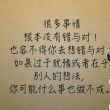 很多事情
根本没有错与对！
也容不得你去想错与对
如果过于犹豫或者在乎
别人的想法，
你可能什么事也做不成。